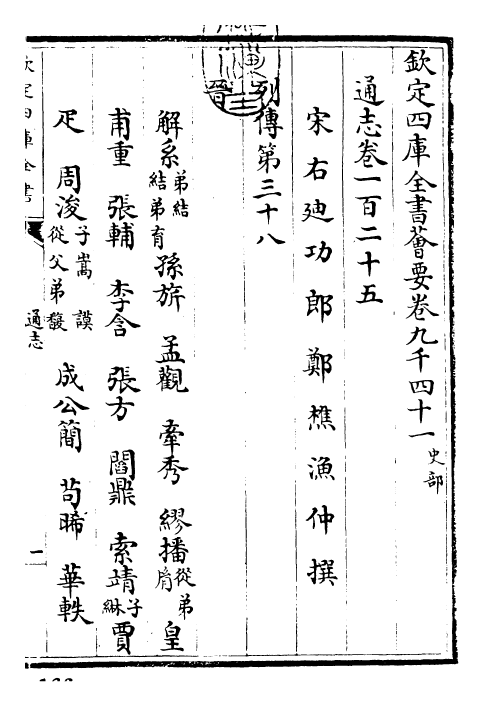 欽定四庫全書薈要卷九千四十一 史部
通志卷一百二十五
宋右廸功郎鄭樵漁仲撰
列傳第三十八
晉
解系 弟結 結弟育 孫旂 孟觀 牽秀 繆播 從弟胤 皇
甫重 張輔 李含 張方 閻鼎 索靖 子綝 賈
疋 周浚 子嵩 謨 從父弟馥 成公簡 苟晞 華軼
欽定四庫全書
通志
一